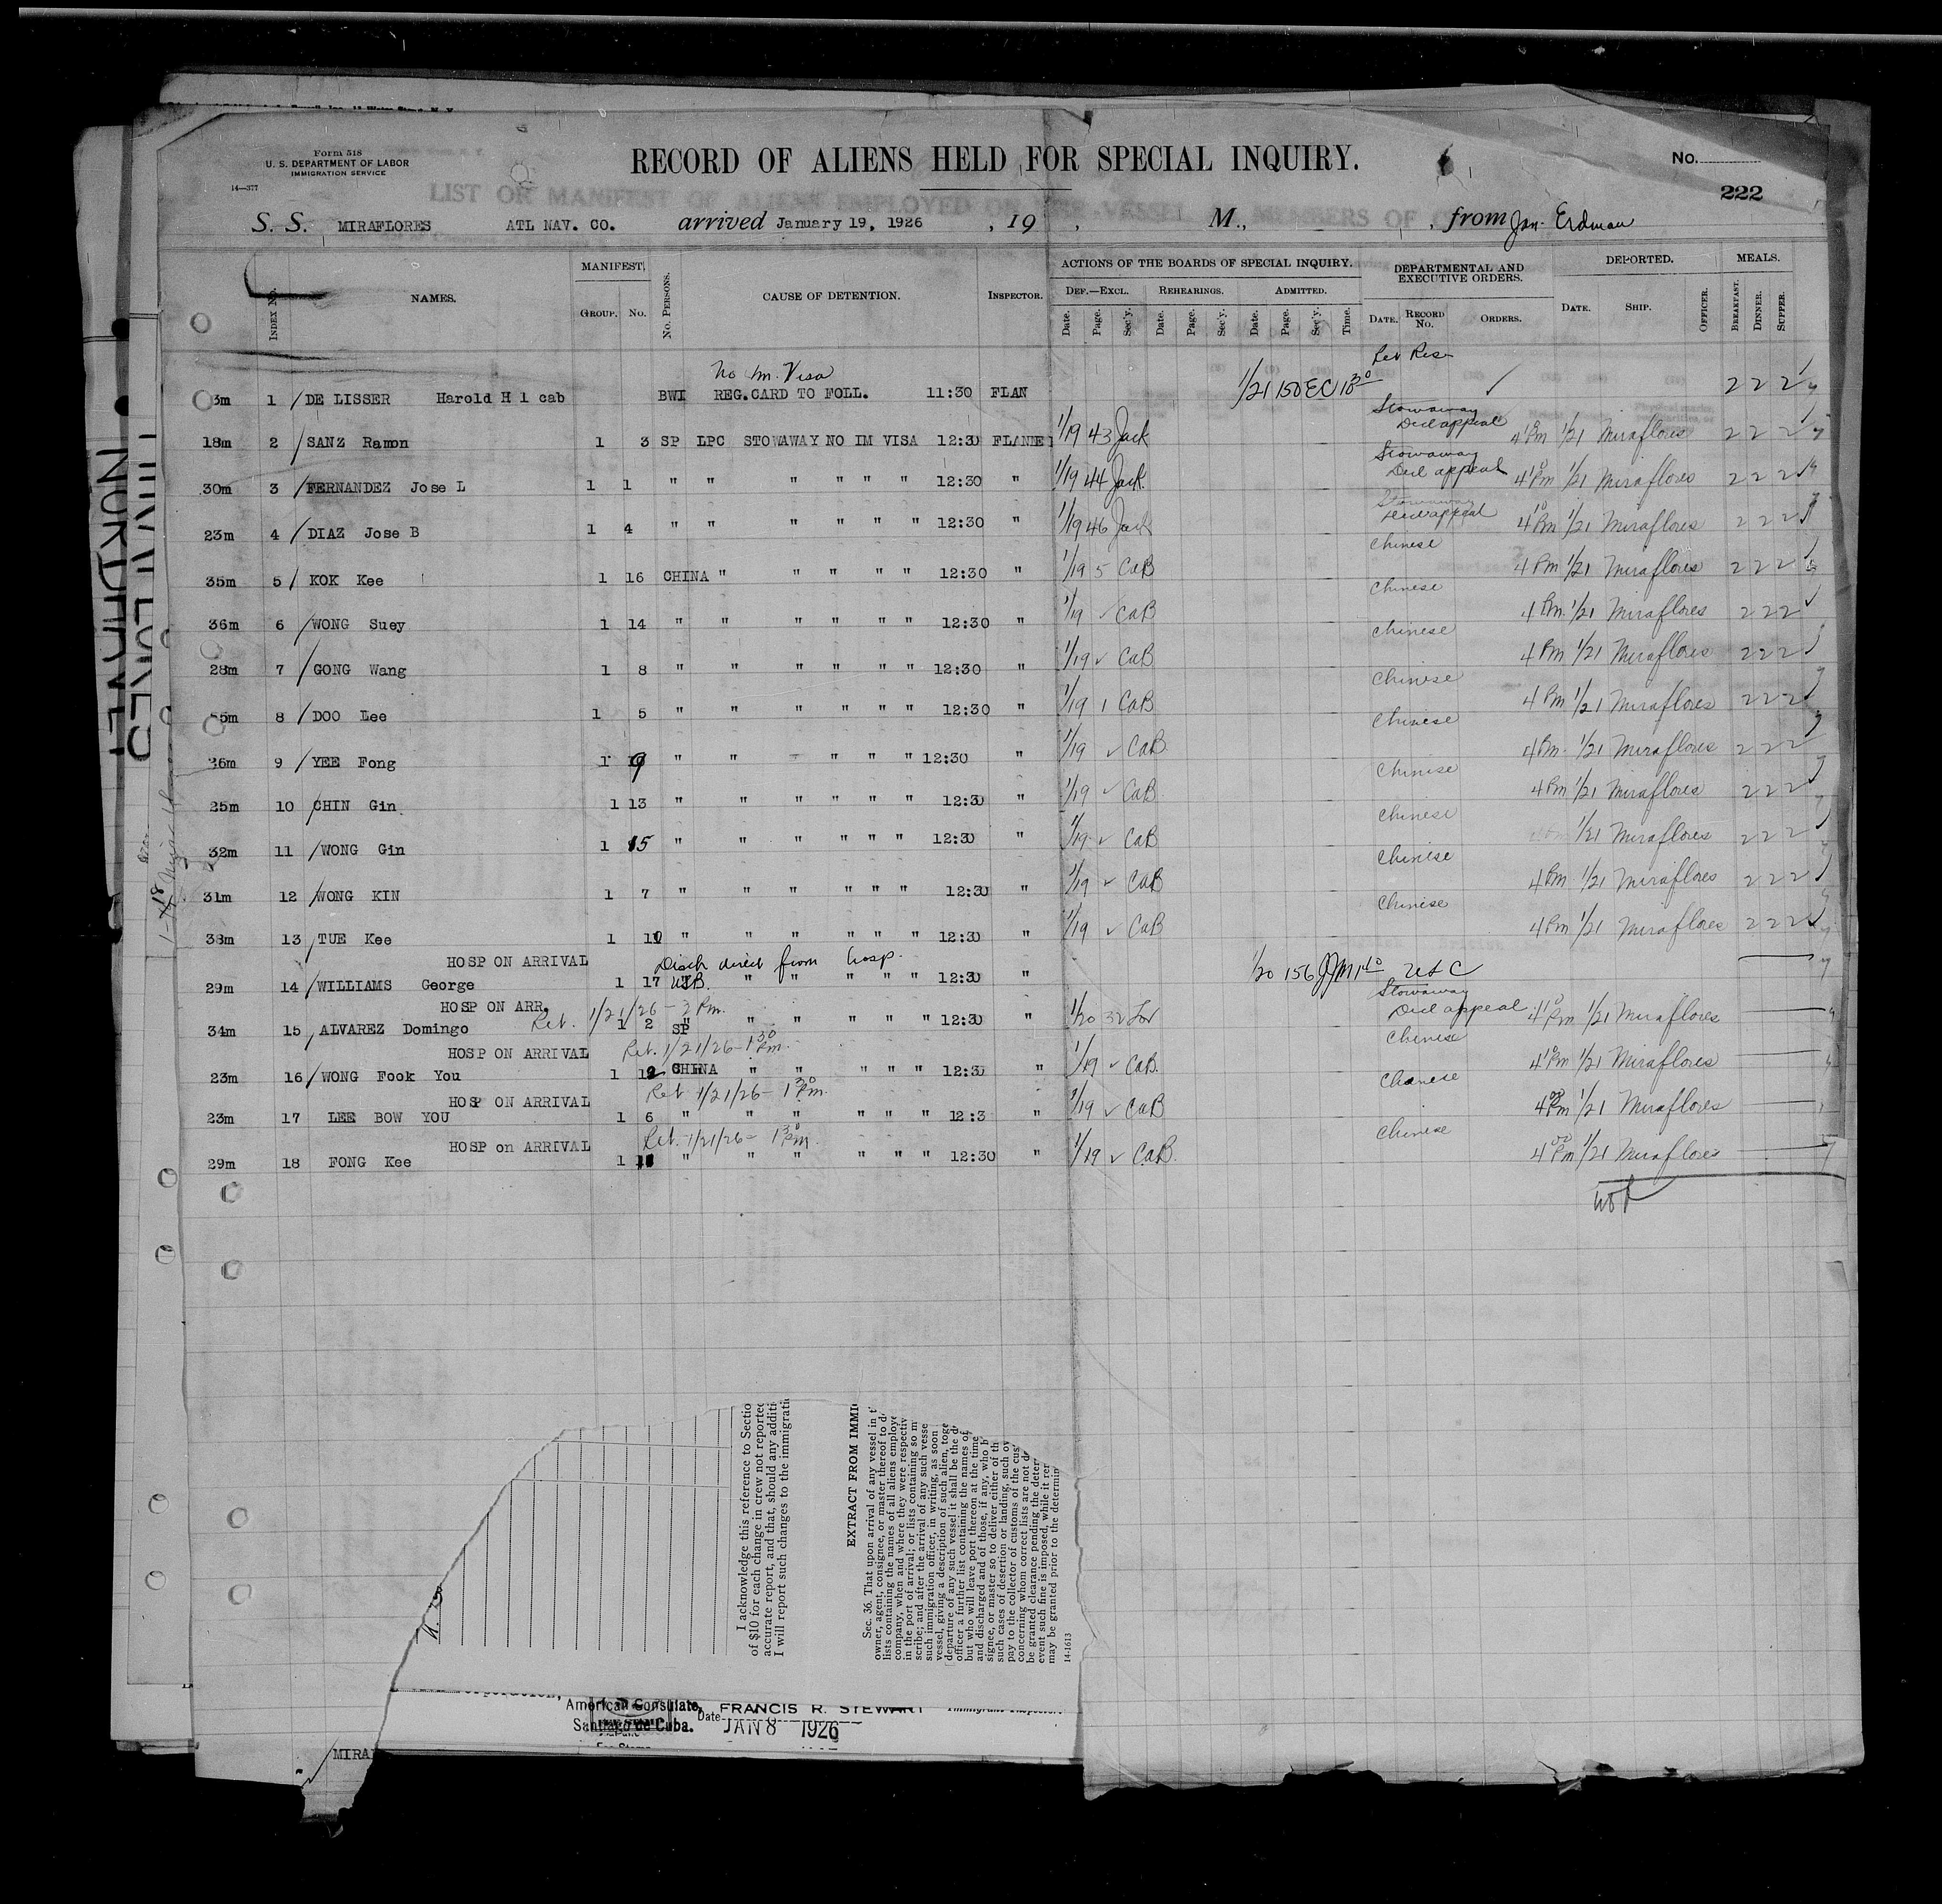 Form 518
U. S. DEPARTMENT OF LABOR
IMMIGRATION SERVICE
14—377
RECORD OF ALIENS HELD FOR SPECIAL INQUIRY.
No.
222
LIST OR MANIFEST OF ALIENS EMPLOYED ON THE VESSEL AS MEMBERS OF
S. S. MIRAFLORES ATL NAV. CO. arrived January 19, 1926 , 19 , M., , from Jan. Erdman
INDEX No. NAMES. MANIFEST, GROUP. No. No. PERSONS. CAUSE OF DETENTION. INSPECTOR. ACTIONS OF THE BOARDS OF SPECIAL INQUIRY. DEPARTMENTAL AND EXECUTIVE ORDERS. DEPORTED. MEALS.
DEF.—EXCL. REHEARINGS. ADMITTED.
Date. Page. Sec'y. Date. Page. Sec'y. Date. Page. Sec'y. Time. DATE. RECORD No. ORDERS. DATE. SHIP. OFFICER. BREAKFAST. DINNER. SUPPER.
No Im. Visa
3m 1 / DE LISSER Harold H 1 cab BWI REG.CARD TO FOLL. 11:30 FLAN 1/21 150 EC 10 30 2 2 2
Stowaway
18m 2 / SANZ Ramon 1 3 SP LPC STOWAWAY NO IM VISA 12:30 1/19 43 Jack Decl appeal 4 10 Pm 1/21 Miraflores 2 2 2
Stowaway
30m 3 / FERNANDEZ Jose L 1 1 " " " " " " 12:30 " 1/19 44 Jack Decl appeal 4 10 Pm 1/21 Miraflores 2 2 2
Stowaway
23m 4 / DIAZ Jose B 1 4 " " " " " " 12:30 " 1/19 46 Jack Decl appeal 4 10 Pm 1/21 Miraflores 2 2 2
35m 5 / KOK Kee 1 16 CHINA " " " " " 12:30 " 1/19 5 CaB Chinese 4 Pm 1/21 Miraflores 2 2 2
36m 6 / WONG Suey 1 14 " " " " " " 12:30 " 1/19 ✓ CaB Chinese 4 Pm 1/21 Miraflores 2 2 2
28m 7 / GONG Wang 1 8 " " " " " " 12:30 " 1/19 ✓ CaB Chinese 4 Pm 1/21 Miraflores 2 2 2
8 / DOO Lee 1 5 " " " " " " 12:30 " 1/19 1 CaB Chinese 4 Pm 1/21 Miraflores 2 2 2
36m 9 / YEE Fong 1 9 " " " " " 12:30 " 1/19 ✓ CaB Chinese 4 Pm 1/21 Miraflores 2 2 2
25m 10 / CHIN Gin 1 13 " " " " " " 12:30 " 1/19 ✓ CaB Chinese 4 Pm 1/21 Miraflores 2 2 2
32m 11 / WONG Gin 1 15 " " " " " " 12:30 " 1/19 ✓ CaB Chinese 1/21 Miraflores 2 2 2
31m 12 / WONG KIN 1 7 " " " " " " 12:30 " 1/19 ✓ CaB Chinese 4 Pm 1/21 Miraflores 2 2 2
38m 13 / TUE Kee 1 " " " " " " 12:30 " 1/19 ✓ CaB Chinese 4 Pm 1/21 Miraflores 2 2 2
HOSP ON ARRIVAL Disch direct from hosp.
29m 14 / WILLIAMS George 1 17 " " " " " 12:30 " 1/20 156 JJM 1 40 USC
HOSP ON ARR. Ret. 1/21/26 - 2 Pm. Stowaway
34m 15 / ALVAREZ Domingo 1 2 SP " " " " " " 12:30 " 1/20 32 Decl appeal 4 10 Pm 1/21 Miraflores
HOSP ON ARRIVAL Ret. 1/21/26 - 1 30 Pm.
23m 16 / WONG Fook You 1 12 CHINA " " " " " 12:30 " 1/19 ✓ CaB. Chinese 4 10 Pm 1/21 Miraflores
HOSP ON ARRIVAL Ret 1/21/26 - 1 30 Pm.
23m 17 LEE BOW YOU 1 6 " " " " " " 12:3 " 1/19 ✓ CaB Chinese 4 00 Pm 1/21 Miraflores
HOSP on ARRIVAL Ret. 1/21/26 - 1 30 Pm.
29m 18 FONG Kee 1 " " " " " " 12:30 " 1/19 ✓ CaB. Chinese 4 00 Pm 1/21 Miraflores
I acknowledge this reference to Sectio
of $10 for each change in crew not reported
accurate report, and that, should any additi
I will report such changes to the immigrati
EXTRACT FROM IMMI
Sec. 36. That upon arrival of any vessel in t
owner, agent, consignee, or master thereof to d
lists containing the names of all aliens employe
company, when and where they were respectiv
in the port of arrival; or lists containing so m
scribe; and after the arrival of any such vesse
such immigration officer, in writing, as soon
vessel, giving a description of such alien, toge
departure of any such vessel it shall be the d
officer a further list containing the names of
but who will leave port thereon at the time
and discharged and of those, if any, who b
signee, or master so to deliver either of th
such cases of desertion or landing, such ow
pay to the collector of customs of the cus
concerning whom correct lists are not de
be granted clearance pending the deter
event such fine is imposed, while it rem
may be granted prior to the determin
14-1613
American Consulate,
Santiago de Cuba.
Date
FRANCIS R. STEWART
JAN 8 1926
Immigrant Inspector.
MIRA